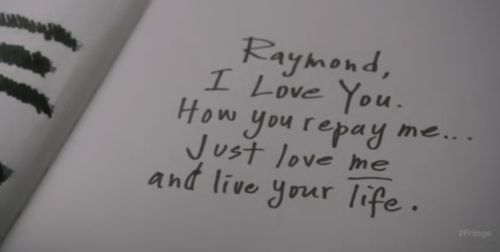 Raymond,
I Love You.
How you repay me...
Just love me
and live your life.
#Fringe